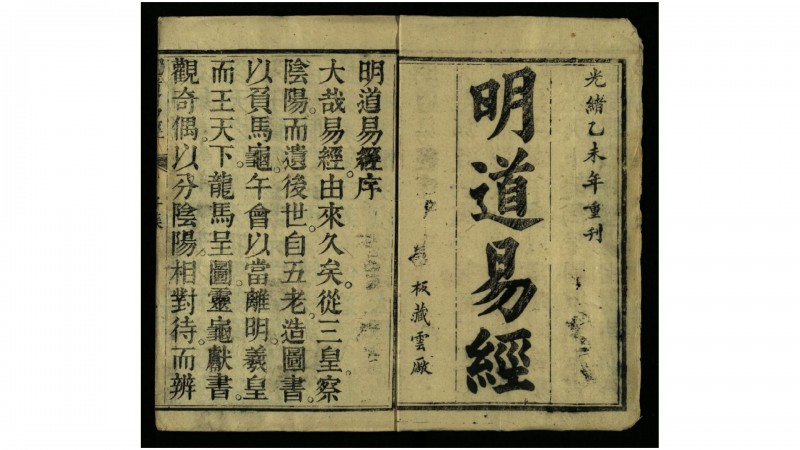 光緒乙未年重刊
明道易經
板藏雲厰
明道易經序
大哉易經。由來久矣。從三皇察
陰陽。而遺後世。自五老造圖書。
以負馬龜。午會以當離明。羲皇
而王天下。龍馬呈圖。靈龜獻書。
觀奇偶以分陰陽。相對待而辨